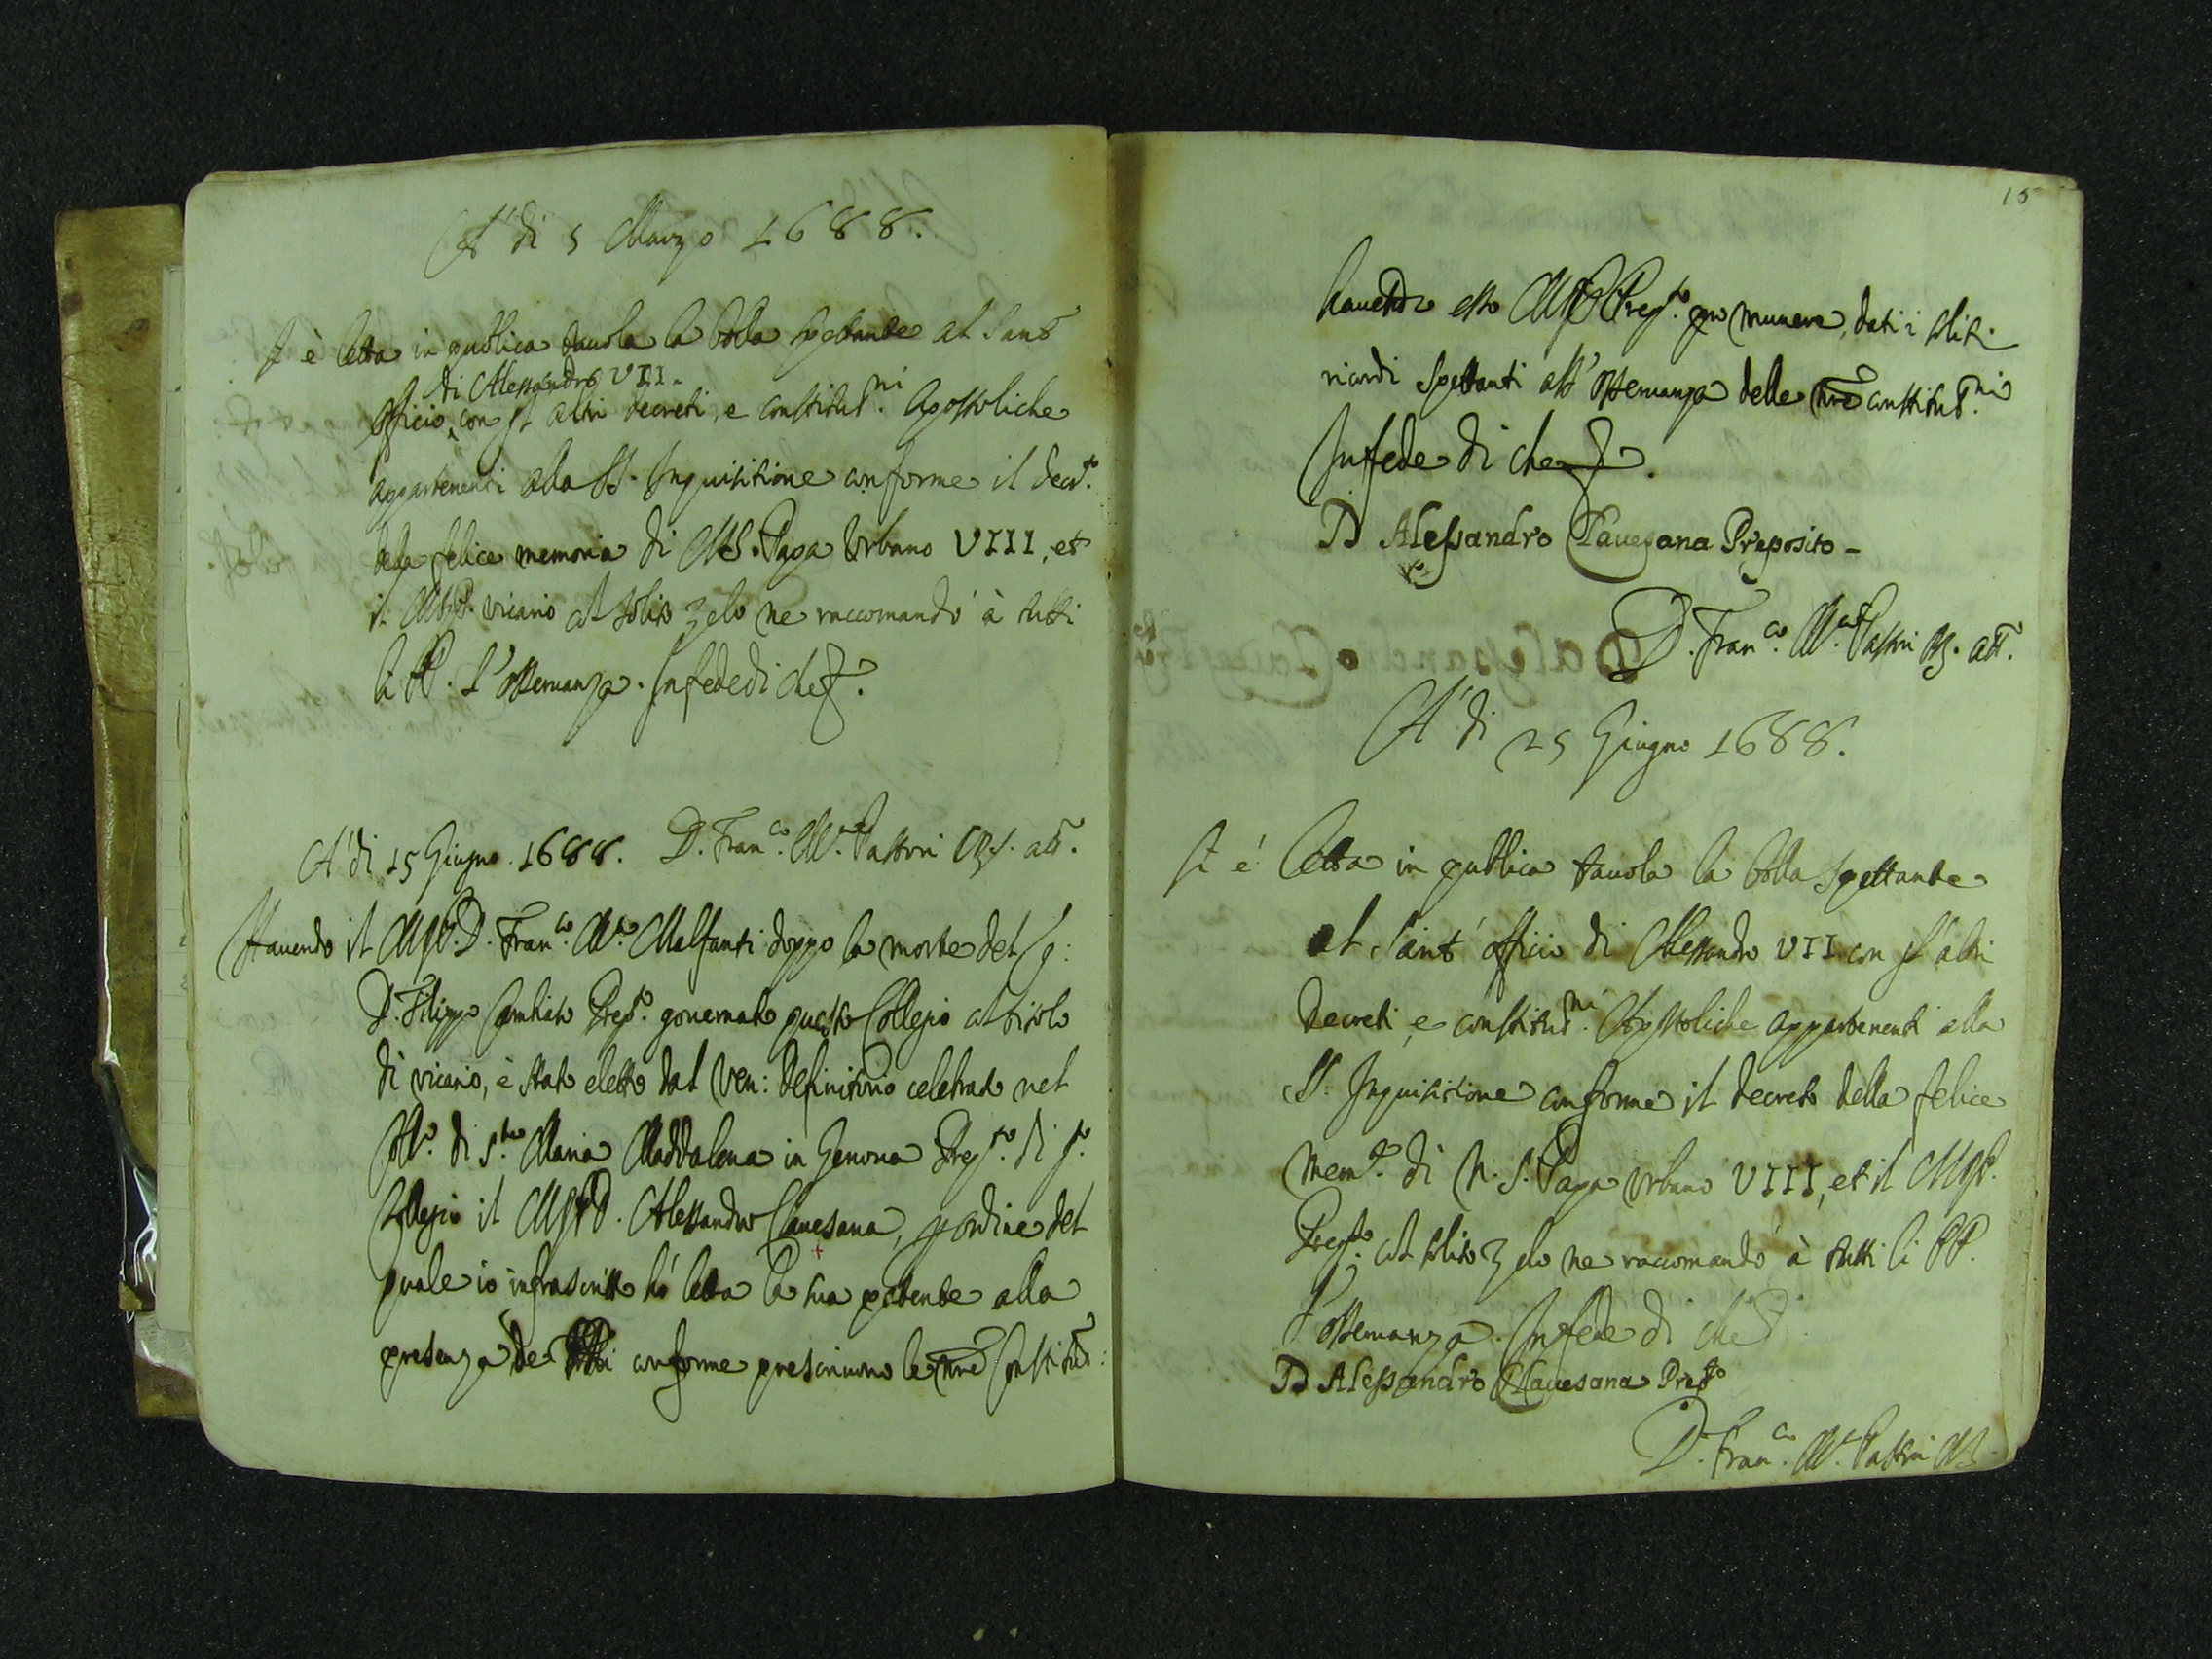 A dì 5 Marzo 1688.
Si è letta in publica tauola la bolla spettante al Sant'
di Alessandro VII.
officio, con gl' altri decreti, e constitut.ni Apostoliche
appartenenti alla SS. Inquisitione conforme il decr.to
della felice memoria di N.S. Papa Urbano VIII, et
il M.R.P. vicario col solito zelo ne raccomandò à tutti
li PP. l'osseruanza. In fede di che
D. Fran.co M.a Pastori att.
A dì 15 Giugno 1688.
Hauendo il M.R.P.D. Fran.co M.a Malfanti doppo la morte del
D. Filippo Prep.to gouernato questo Collegio col titolo
di vicario, è stato eletto dal Ven: Definitorio celebrato nel
Coll.o di S.ta Maria Maddalena in Genova Prep.to di q.to
Collegio il M.R.P.D. Alessandro Clauesana, p ordine del
quale io infrascritto hò letta la sua patente alla
presenza de conforme prescriuono le nre Constitut:
15
hauendo esso M.R.P. Prep.to pro munere, dati i soliti
ricordi spettanti all' osseruanza delle nre constitut.ni
In fede di che
D Alessandro Clauesana Preposito
D. Fran.co M.a Pastori att.
A dì 25 Giugno 1688.
Si è letta in publica tauola la bolla spettante
al Sant' officio di Alessandro VII con gl' altri
decreti, e constitut.ni Apostoliche appartenenti alla
SS. Inquisitione conforme il decreto della felice
mem.a di N. S. Papa Urbano VIII, et il M.R.P.
Prep.to col solito zelo ne raccomandò à tutti li PP.
l'osseruanza. In fede di che
D Alessandro Clauesana Prep.to
D. Fran.co M.a Pastori